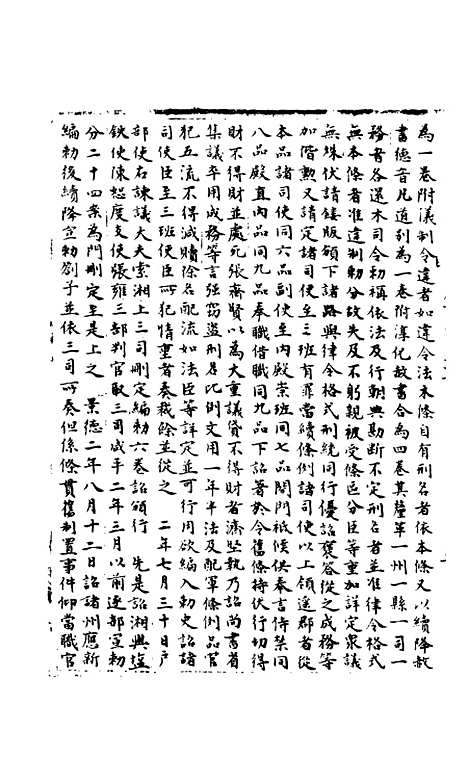 為一卷附儀制令違者如違令法本條自有刑名者依本條又以續降赦
書德音凡道列為一卷附淳化赦書合為四卷其釐革一州一縣一司一
務者各還本司令勅稱依法及行朝典勘斷不定刑名者並准律令格式
無本條者准違制勅分故失及不躬親被受條區分臣等重加詳定眾議
無殊伏請鏤版頒下諸路與律令格式刑統同行優詔褒答從之成務等
加階勳又請定諸司使至三班有罪當續條例諸司使以上領遙郡者從
本品諸司使同六品副使至內殿崇班同七品閤門祇候供奉官侍禁同
八品殿直內品同九品奉職借職同九品下詔著於令舊條持伏行切得
財不得財並處死張齊賢以為太重議貸不得財者濟堅執乃詔尚書省
集議卒用成務等言強竊盜刑名比例文用一年半法及配軍條例品官
犯五流不得減贖除名配流如法臣等詳定並可行用欲編入勅史詔諸
司使臣至三班使臣所犯情重者奏裁餘並從之 二年七月三十日戶
部使右諫議大夫索湘上三司刪定編勅六卷詔頒行 先是詔湘與鹽
鐵使陳恕度支使張雍三部判官取三司咸平二年三月以前逐部宣勅
分二十四案為門刪定至是上之 景德二年八月十二日詔諸州應新
編勅後續降宣勅劄子並依三司所奏但係條貫舊制置事件仰當職官